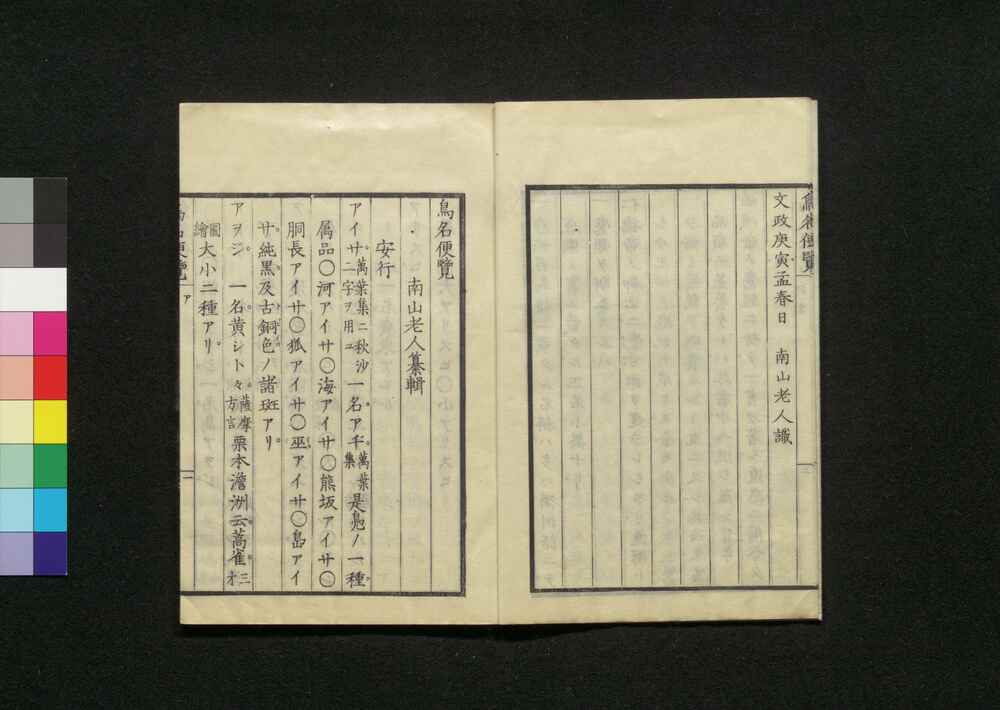 鳥名便覧
文政庚寅孟春日　南山老人識
鳥名便覧
南山老人纂輯
安行
アイサ 萬葉集ニ秋沙二字ヲ用ユ 一名アヂ 萬葉集 是鳧ノ一種
属品〇河アイサ〇海アイサ〇熊坂アイサ〇
胴長アイサ〇狐アイサ〇巫アイサ〇島アイ
サ純黒及古銅色ノ諸斑アリ
アヲジ　一名黄シトヽ 薩摩方言 栗本澹洲云蒿雀 三才
圖繪 大小二種アリ
鳥名便覧　ア　一